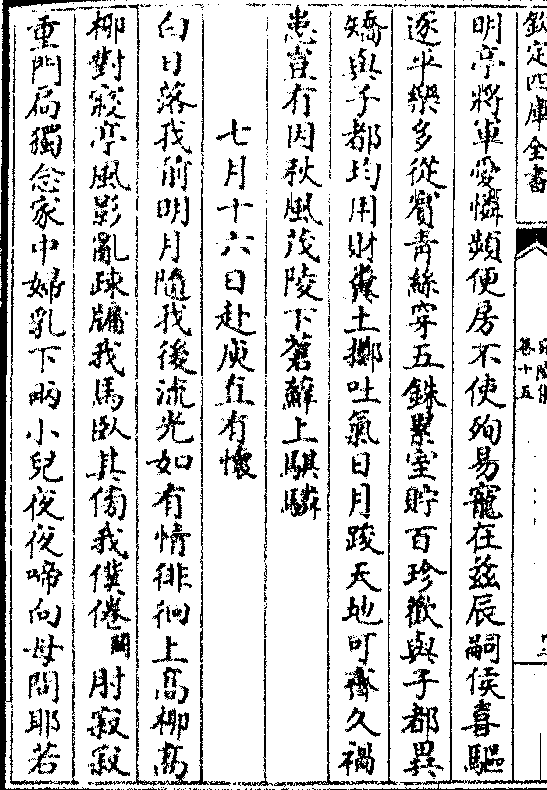 欽定四庫全書
卷十五
明亭將軍愛憐頻便房不使殉易寵在兹辰嗣侯喜驅
逐平樂多從賓青絲穿五銖累室貯百珍歡與子都異
矯與子都均用財糞土擲吐氣日月踆天地可齊久禍
患豈有因秋風茂陵下蒼蘚上騏驎
七月十六日赴庾丘有懷
白日落我前明月隨我後流光如有情徘徊上高柳高
柳對寂亭風影亂疎牖我馬臥其傍我僕倦闕肘寂寂
重門扃獨念家中婦乳下兩小兒夜夜啼向母問耶若